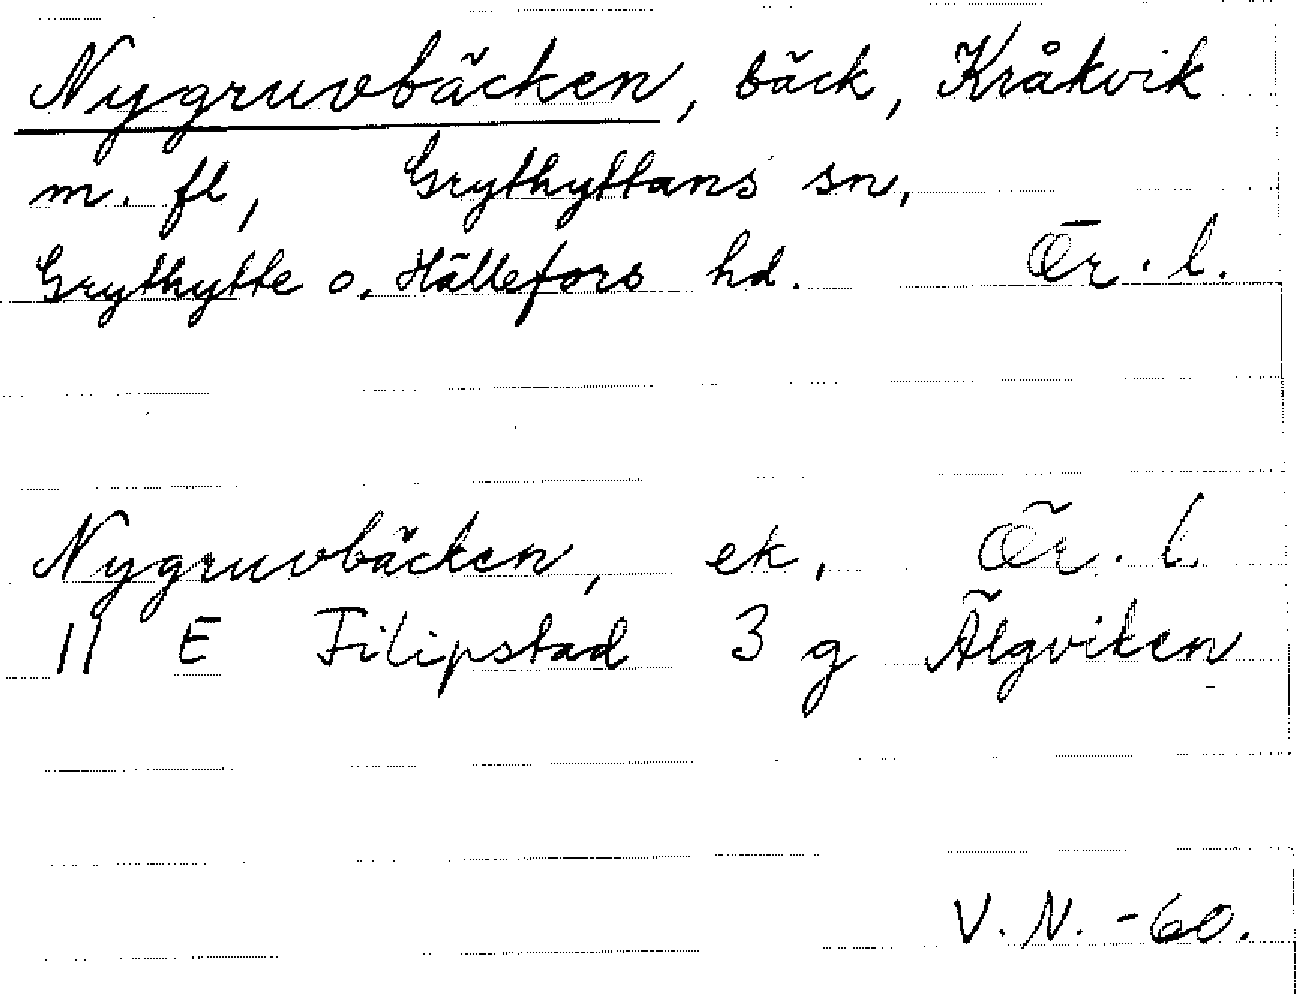 Nygruvbäcken, bäck, Kråkvik
m. fl, Grythyttans sn,
Grythytte o. Hällefors hd. Ör. l.
Nygruvbäcken, ek, Ör. l
11 E Filipstad 3 g Älgviken
V. N. -60.